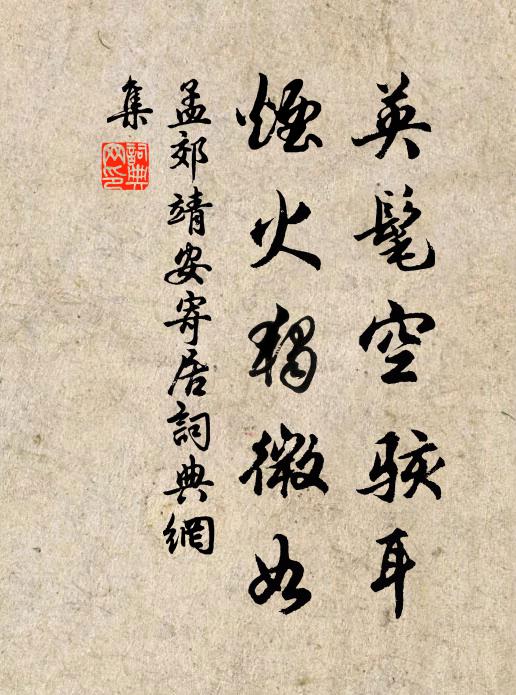 英髦空駭耳
煙火獨微如
孟郊靖安寄居詞典網
集
詞典
网印